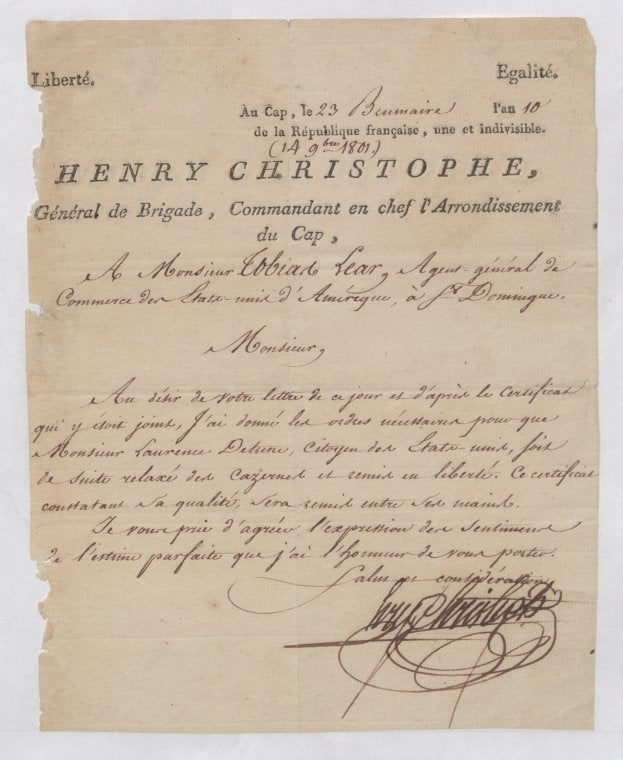 Liberté. Egalité.
Au Cap, le 23 Brumaire l'an 10
de la République française, une et indivisible.
(14 9bre 1801.)
HENRY CHRISTOPHE,
Général de Brigade, Commandant en chef l'Arrondissement
du Cap,
A Monsieur Tobias Lear, Agent-général de
Commerce des Etats-unis d'Amérique, à St Domingue.
Monsieur,
Au désir de votre lettre de ce jour et d'après le Certificat
qui y étoit joint, J'ai donné les ordres nécessaires pour que
Monsieur Laurence Detune, Citoyen des Etats-unis, soit
de suite relaxé des Cazernes et remis en liberté. Ce certificat
constatant sa qualité, sera remis entre ses mains.
Je vous prie d'agréer l'expression des Sentimens
de l'estime parfaite que j'ai l'honneur de vous porter.
Salut et considération,
Henry Christophe